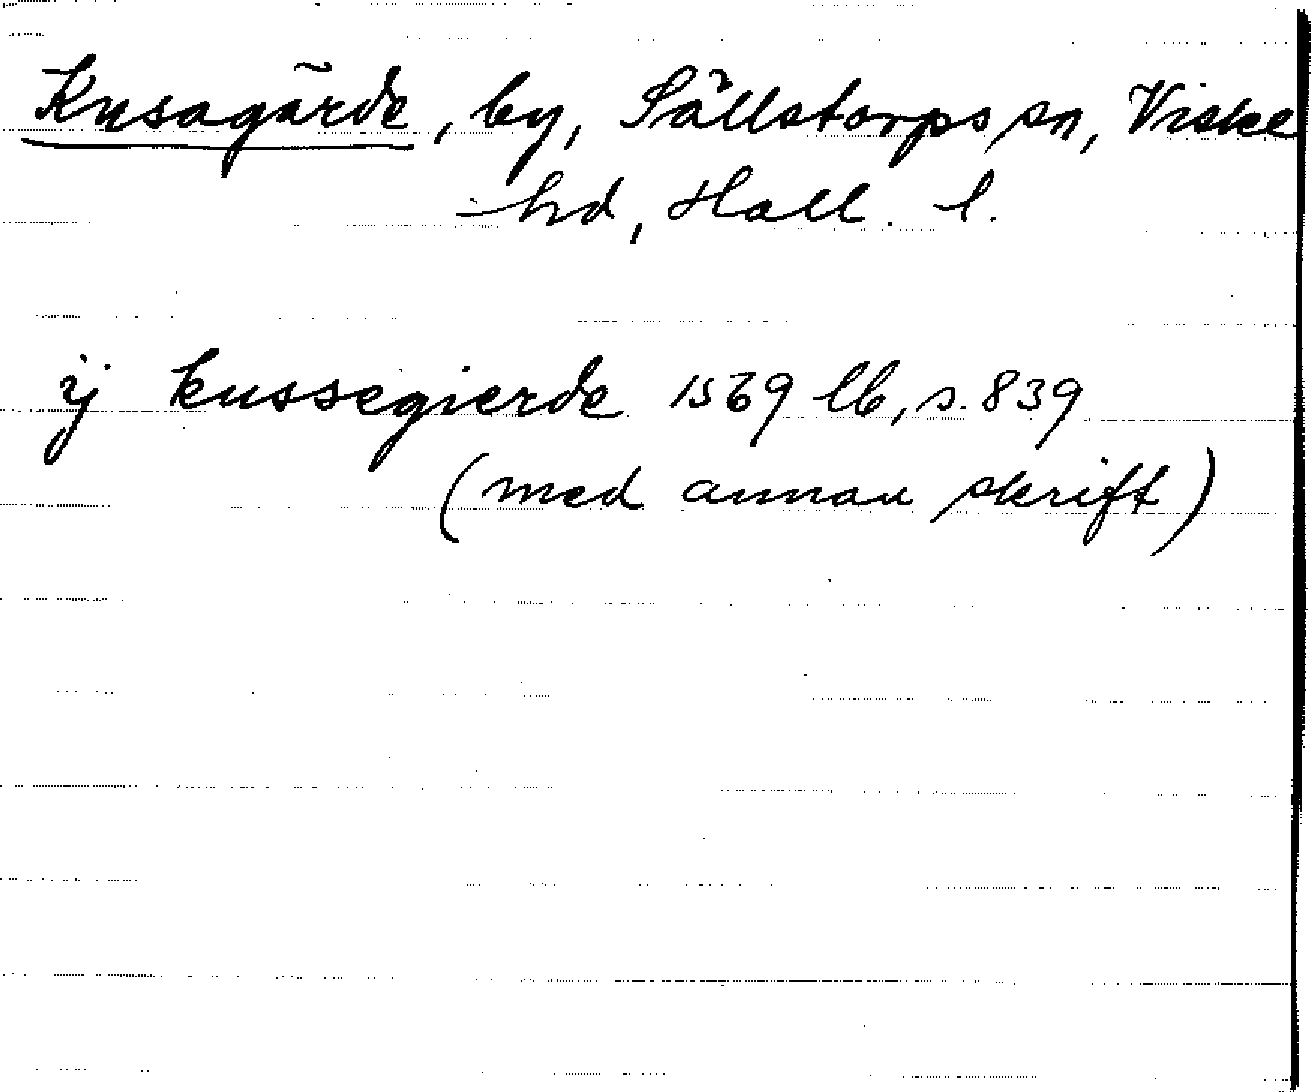 Kusagärde, by, Sällstorps sn, Viske
-hd, Hall. l.
ij kussegierde 1569 lb, s. 839
(med annan skrift)